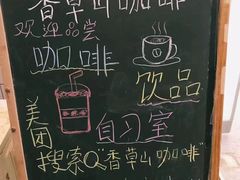 香草山咖啡
欢迎品尝
咖啡
饮品
美团
自习室
搜索Q"香草山咖啡"